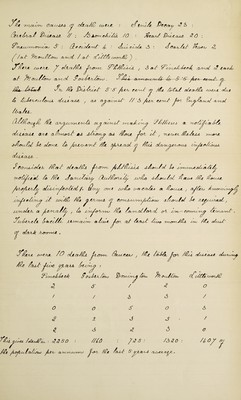 The main causes of death were : Senile Decay 23 :
Cerebral Disease 8 : Bronchitis 10 : Heart Disease 20 :
Pneumonia 5 : Accident 4 : Suicide 3 : Scarlet Fever 2
(1 at Moulton and 1 at
There were 7 deaths from Phthisis, 3 at Pinchbeck and 2 each
at Moulton and Gosberton. This amounts to 5.8 per cent of
the total In the District 5.8 per cent of the total deaths were due
to tuberculous disease, as against 11.3 per cent for England and
Wales.
Although the arguments against making Phthisis a notifiable
disease are almost as strong as those for it, nevertheless more
should be done to prevent the spread of this dangerous infectious
disease.
I consider that deaths from phthisis should be immediately
notified to the Sanitary Authority who should have the house
properly disinfected & Any one who vacates a house, after knowingly
infecting it with the germs of consumption should be required,
under a penalty, to inform the landlord or in-coming tenant.
Tubercle bacilli remain alive for at least two months in the dust
of dark rooms.
There were 10 deaths from Cancer, the table for this disease during
the last five years being :
Pinchbeck Gosberton Donington Moulton
2 5 1 2 0
1 1 3 3 1
0 0 5 0 3
2 3 3 3 1
2 3 2 3 0
This gives 1 death in 2250 : 1160 : 725 : 1320 : 1607 of
the population per annum for the last 5 years average.